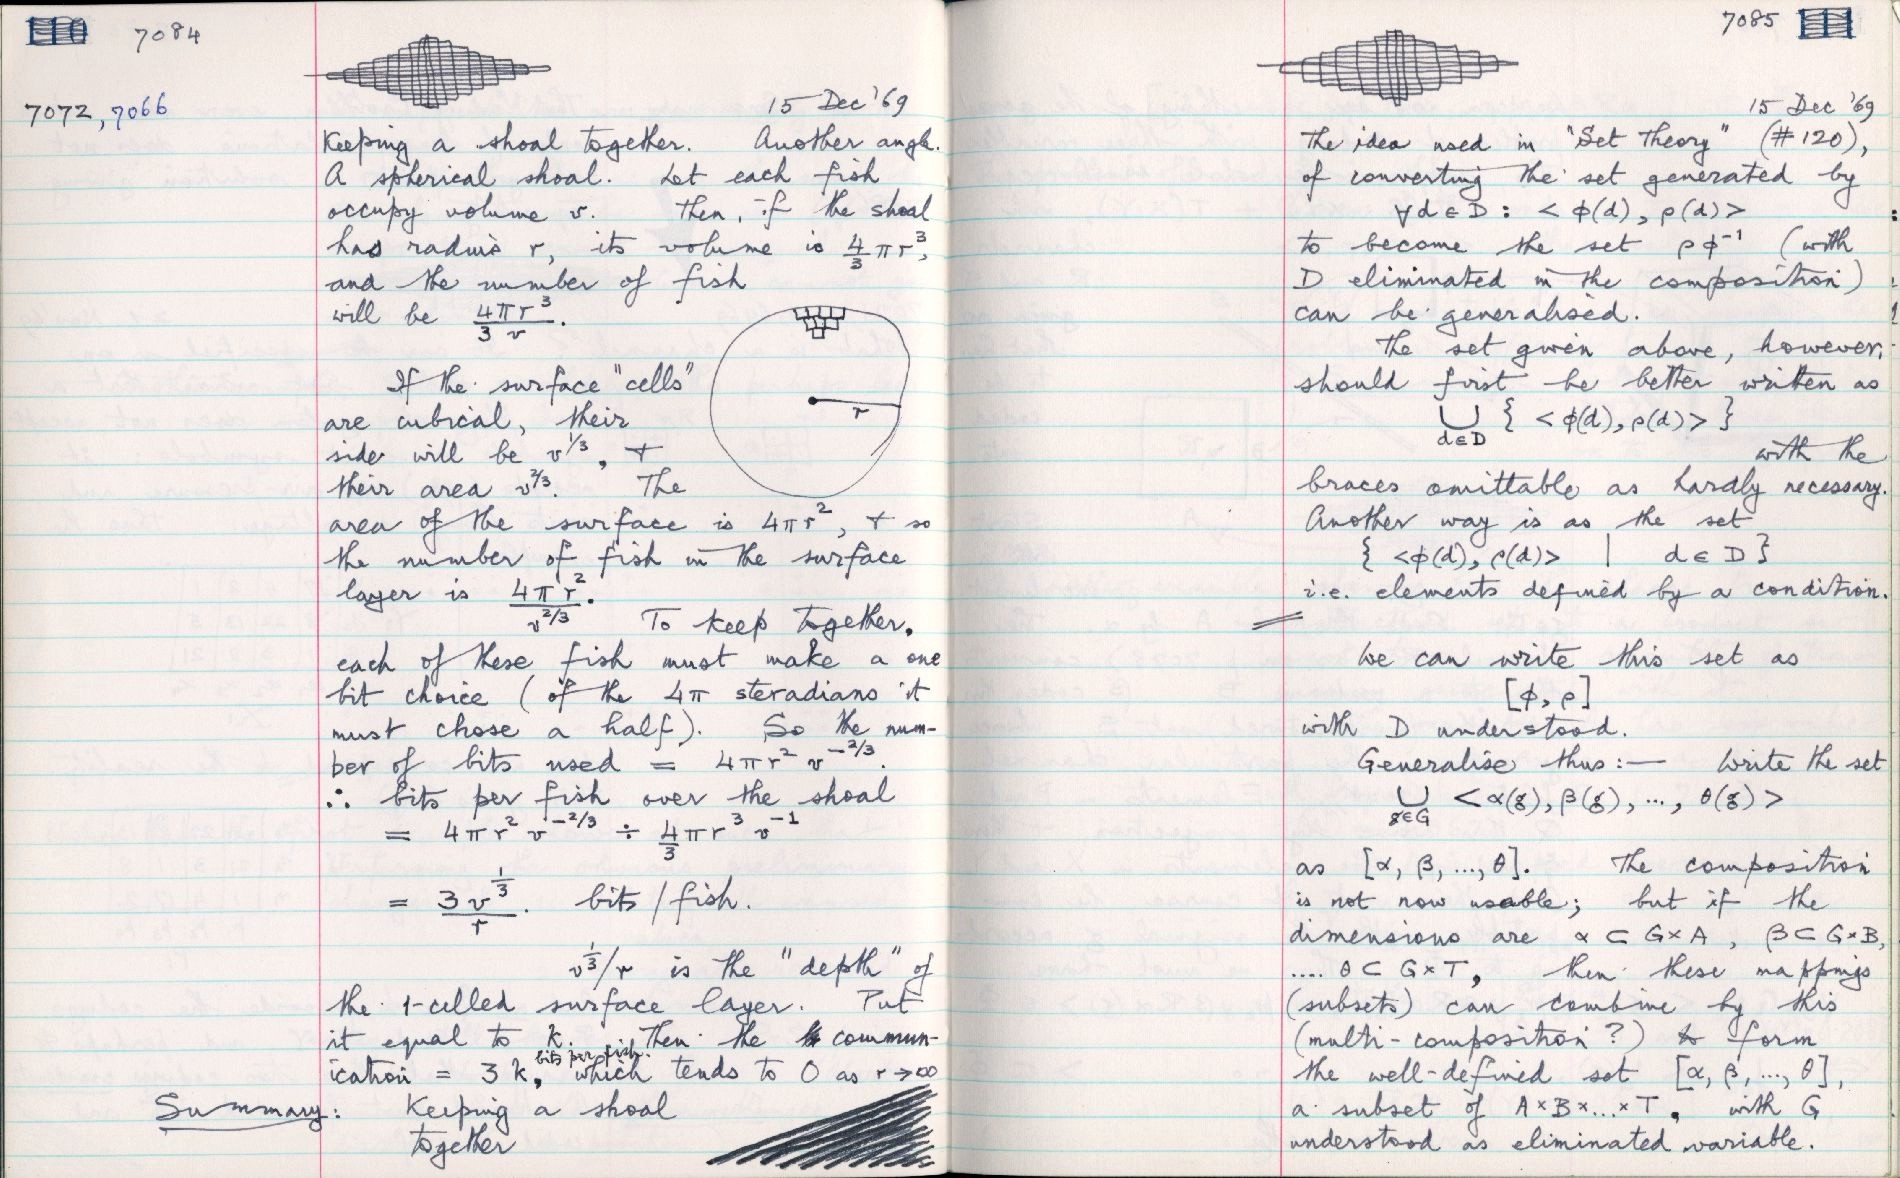 110 7084
7072, 7066
15 Dec '69
Keeping a shoal together. Another angle.
A spherical shoal. Let each fish
occupy volume v. Then, if the shoal
has radius r, its volume is 4/3 πr³,
and the number of fish
will be 4πr³/3v.
If the surface "cells"
are cubical, their
side will be v^1/3, +
their area v^2/3. The
r
area of the surface is 4πr², + so
the number of fish in the surface
layer is 4πr²/v^2/3.
To keep together,
each of these fish must make a one
bit choice (of the 4π steradians it
must chose a half). So the num-
ber of bits used = 4πr² v^-2/3.
∴ bits per fish over the shoal
= 4πr² v^-2/3 ÷ 4/3 πr³ v^-1
= 3v^1/3/r. bits/fish.
v^1/3/r is the "depth" of
the 1-celled surface layer. Put
it equal to k. Then the commun-
ication = 3k bits per fish, which tends to 0 as r→∞
Summary: Keeping a shoal
together
7085 111
15 Dec '69
The idea used in "Set Theory" (#120),
of converting the set generated by
∀d∈D: <φ(d), ρ(d)>
to become the set ρφ⁻¹ (with
D eliminated in the composition)
can be generalised.
The set given above, however,
should first be better written as
⋃ d∈D { <φ(d), ρ(d)> }
with the
braces omittable as hardly necessary.
Another way is as the set
{ <φ(d), ρ(d)> | d∈D }
i.e. elements defined by a condition.
We can write this set as
[φ, ρ]
with D understood.
Generalise thus:— Write the set
⋃ g∈G <α(g), β(g), ..., θ(g)>
as [α, β, ..., θ]. The composition
is not now usable; but if the
dimensions are α ⊂ G×A, β ⊂ G×B,
.... θ ⊂ G×T, then these mappings
(subsets) can combine by this
(multi-composition?) to form
the well-defined set [α, β, ..., θ],
a subset of A×B×...×T, with G
understood as eliminated variable.